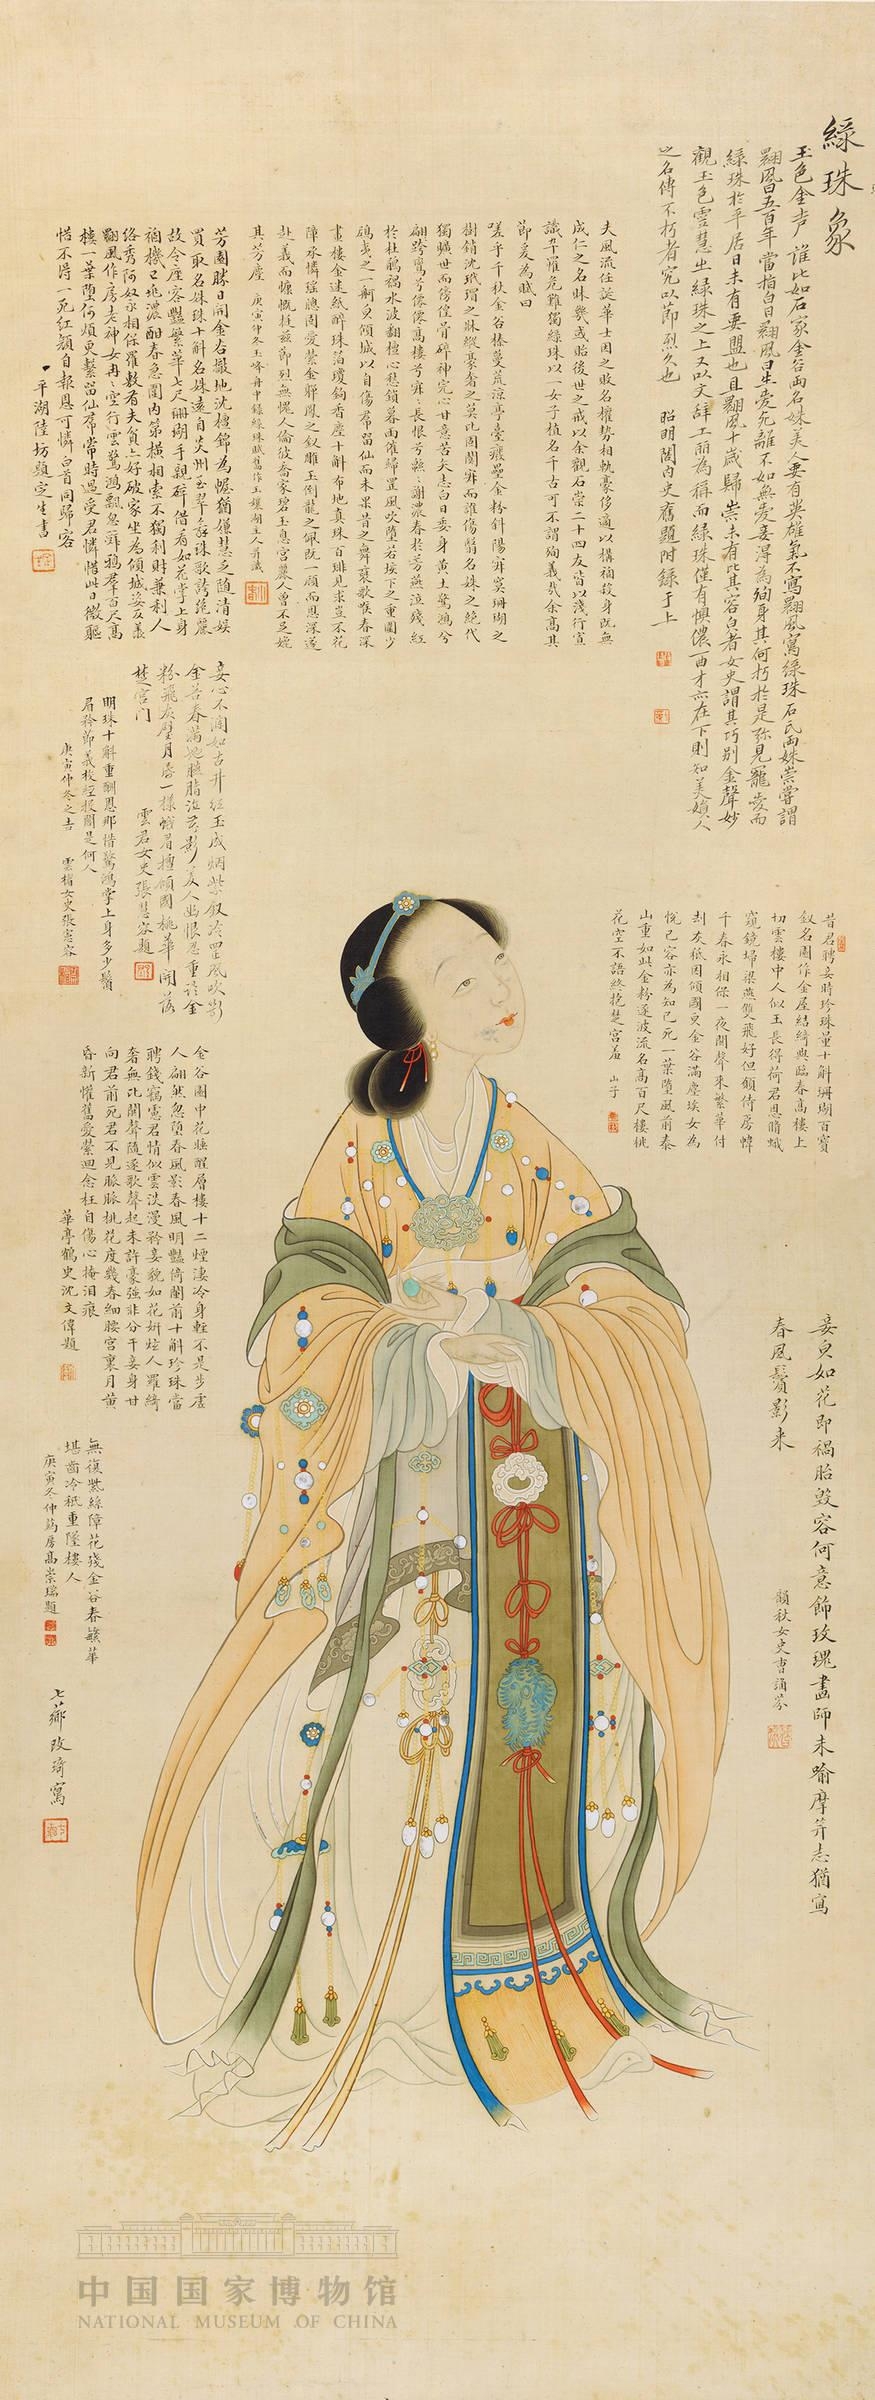 綠珠象
玉色金声誰比如石家金谷兩名姝美人要有英雄氣不寫翾風寫綠珠石氏兩姝崇嘗謂
翾風曰五百年當指白日翾風曰生愛死離不如無愛妾得為殉身其何朽於是弥見寵愛而
綠珠於平居日未有要盟也且翾風十歲歸崇未有比其容白者女史謂其巧別金聲妙
觀玉色霊慧出綠珠之上又以文辞工丽為稱而綠珠僅有懊儂一曲才亦在下則知美嬪人
之名傳不朽者究以節烈久也 昭明閣內史舊題附錄于上
夫風流任誕華士因之敗名權勢相軋豪侈適以構禍殺身既無
成仁之名財幾或貽後世之戒以余觀石崇二十四友皆以淺行宣
識卒罹危難獨綠珠以一女子植名千古可不謂殉義哉余高其
節爰為賦曰
嗟乎千秋金谷榛蔓荒涼亭臺癈壘金粉斜陽寂寞珊瑚之
樹銷沈玳瑁之牀縱豪奢之莫比固闃寂而誰傷翳名姝之絕代
獨曠世而徬徨骨碎神完心甘意苦矢志白日委身黄土驚鴻兮
翩跨鸞兮僛僛高樓兮寂〻長恨兮緜〻謝濃春於芳燕泣殘紅
於杜鵑禍水波翻檀心愁鎖暮雨催歸罡風吹墮若埃下之重圍少
鴟夷之一舸負傾城以自傷帬留仙而未果昔之舞衷歌喉春深
畫樓金迷紙醉珠箔瓊鉤香塵十斛布地真珠百琲見求豈不花
障承憐瑤驄固愛縈金躃鳳之釵雕玉倒龍之佩既一顧而恩深遂
赴義而慷慨挺兹節烈無愧人倫彼喬家碧玉息宫麗人曾不足媲
其芳塵 庚寅仲冬玉峰舟中錄綠珠賦舊作玉壤湖主人並識
芳園勝日開金谷撒地沈檀錦為幄猶嫌慧乏隨清娱
買取名姝珠十斛名姝遠自炎州至翠翁珠歌誇绝麗
故令座客豔繁華七尺珊瑚手親碎借看如花掌上身
禍機已兆濃酣春急圍內第横相索不獨利財兼利人
絡秀阿奴永相保羅敷有夫貧亦好破家坐為傾城姿反羨
翾風作房老神女冉〻空行雲驚鴻飄忽辭鴉羣百尺高
樓一葉墮何煩更繫留仙帬常時過受君憐惜此日微軀
惜不惜一死紅顏自報恩可憐白首同歸客
平湖陸坊題定生書
妾心不瀾如古井紅玉成烟紫釵冷罡風吹影
金苔春滿地臙脂泣昙影美人幽恨忍重論金
粉飛灰壁月昏一樣蛾眉擅傾國桃華開落
楚宮门 雲君女史張慧容題
明珠十斛重酬恩那惜驚鴻掌上身多少鬚
眉矜節義投经报閣是何人
庚寅仲冬之吉 雲楣女史張憲容
昔君聘妾時珍珠量十斛珊瑚百寳
釵名園作金屋結綺與臨春高樓上
切雲樓中人似玉長得荷君恩贍蛾
窺鏡埽梁燕雙飛好但願侍房幃
千春永相保一夜闘聲来繁華付
刦灰祗因傾國貟金谷滿塵埃女為
悅己容亦為知己死一葉墮風前泰
山重如此金粉逐波流名高百尺樓桃
花空不語終抱楚宮羞 山子
金谷園中花睡醒層樓十二煙淒冷身輕不是步虛
人翩然忽堕春風影春風明豔倚闌前十斛珍珠當
聘錢竊憲君情似雲泆漫矜妾貌如花妍炫人羅綺
奢無比闘聲隨逐歌聲起未許豪强非分干妾身甘
向君前死君不見脈脈桃花度幾春細腰宫裏月黄
昏新懽舊愛縈迴念枉自傷心掩泪痕
華亭鶴史沈文偉題
妾貟如花即禍胎毁容何意飾玫瑰畫師未喻摩笄志猶寫
春風鬢影来
韻秋女史曹誦芬
無復紫絲障花殘金谷春繁華
堪齒冷祗重墜樓人
庚寅冬仲药房高崇瑞題
七薌改琦寫
中国国家博物馆
NATIONAL MUSEUM OF CHINA